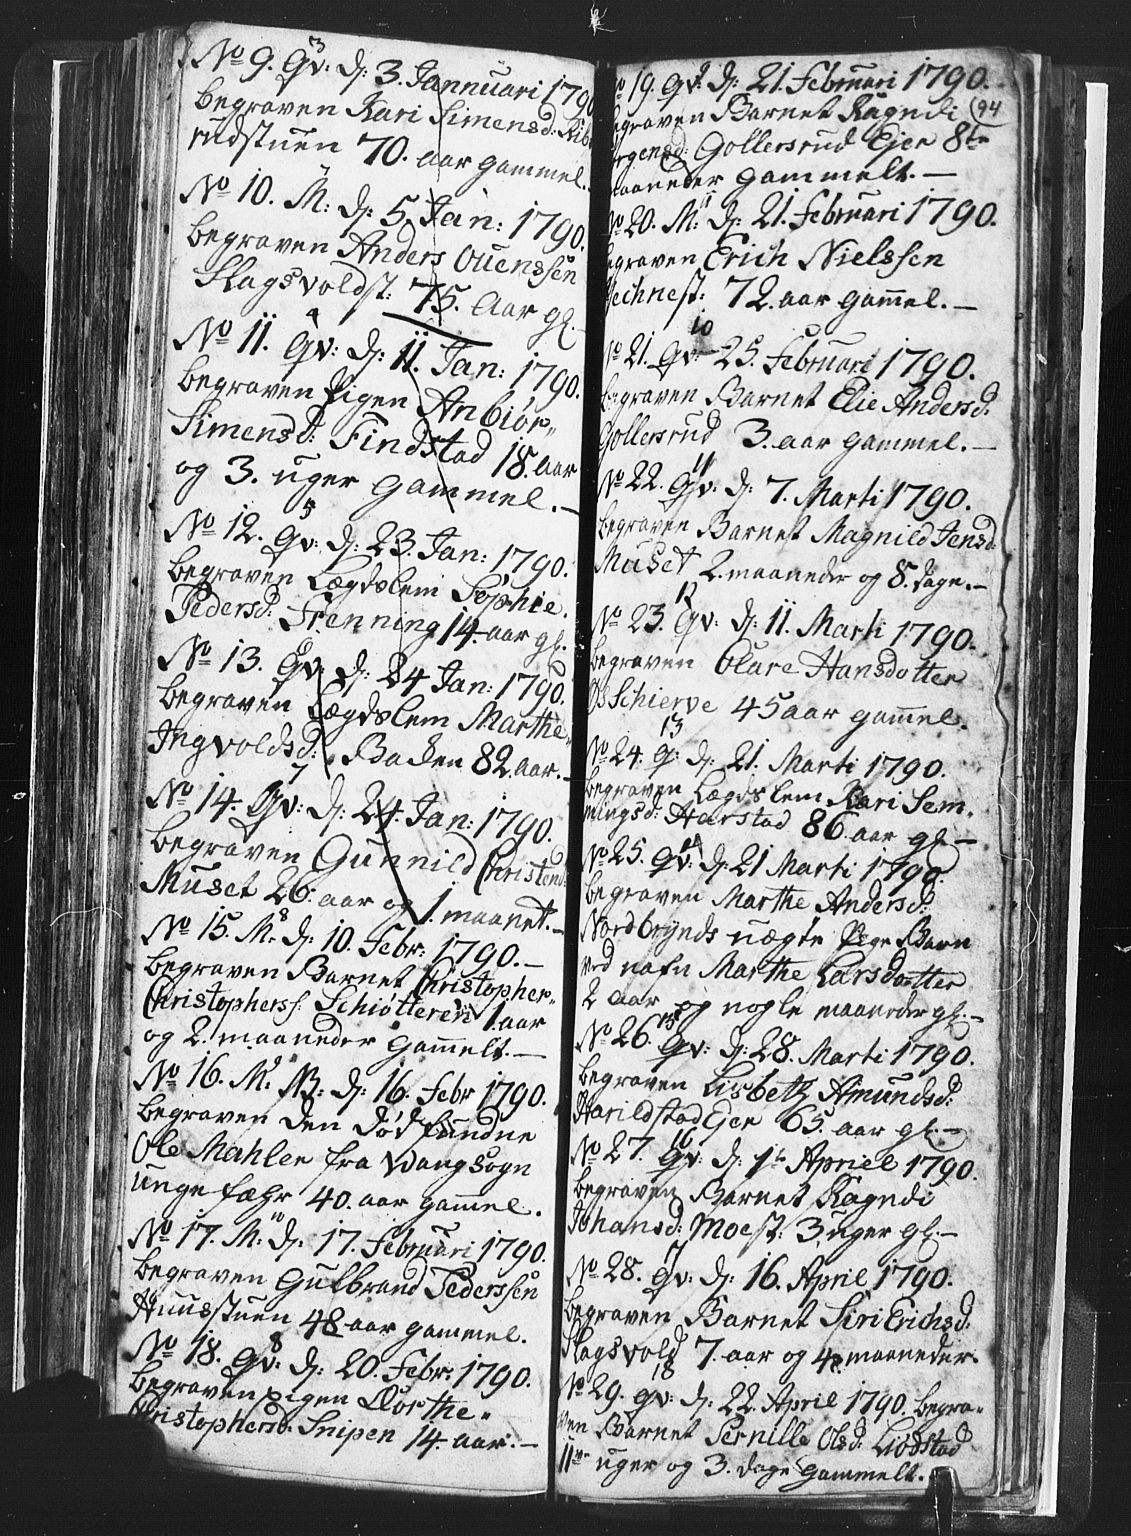 No 9. Qv: d: 3. Jannuari 1790
begraven Kari Simensd:
rudstuen 70. aar gammel.
No 10. M: d: 5. Jan: 1790.
begraven Anders Ouenssen
Slagsvoldst: 75. aar gl.
No 11. Qv: d: 11. Jan: 1790.
begraven Pigen Anbiør
Simensd: Findstad 18. aar
og 3. uger gammel.
No 12. Qv: d: 23. Jan: 1790.
begraven Lægdslem Sophie
Pedersd: Frenning 14. aar gl.
No 13. Qv: d: 24 Jan: 1790.
begraven Lægdslem Marthe
Ingvoldsd: Bakken 82. aar.
No 14. Qv: d: 24. Jan: 1790.
begraven Gunnild Christend:
Muset 26. aar og 1. maanet.
No 15. M: d: 10. Febr: 1790.
begraven Barnet Christopher
Christophers: Schiøtteren 1. aar
og 2. maaneder gammelt.
No 16. M: NB: d: 16. Febr 1790.
begraven den dødfundne
Ole Mahler fra Vangsogn
ungefæhr 40. aar gammel.
No 17. M: d: 17. Februari 1790.
begraven Gulbrand Pederssen
Huusstuen 48 aar gammel.
No 18. Qv: d: 20. Febr: 1790.
begraven Pigen Dorthe
Christophersd: Snipen 14. aar.
94
No 19. Qv: d: 21. Februari 1790.
begraven Barnet Ragndi
Jørgensd: Gollersrud Ejer 8te
maaneder gammelt.
No 20. M: d: 21. Februari 1790.
begraven Erich Nielssen
72. aar gammel.
10
No 21. Qv: 25. Februari 1790.
begraven Barnet Elie Andersd:
Gollersrud 3. aar gammel.
11
No 22. Qv: d: 7. Marti 1790.
begraven Barnet Magnild Jensd:
Muset 2. maaneder og 8. dage.
12
No 23. Qv: d: 11. Marti 1790.
begraven Clare Hansdotter
Schierve 45 aar gammel.
13
No 24. Q: d: 21. Marti 1790.
begraven Lægdslem Kari Sem-
mingsd: Harstad 86. aar gl.
No 25. Qv: d: 21 Marti 1790.
begraven Marthe Andersd:
Nordbrynds uægte Barn
ved nafn Marthe Larsdotter
2 aar og nogle maaneder gl.
15
No 26. Qv: d: 28. Marti 1790.
begraven Lisbeth Amundsd:
Harildstad Ejer 65. aar gl.
16
No 27. Qv: d: 1te Apriel 1790.
begraven Barnet Ragndi
Johansd: Moest: 3. uger gl.
17
No 28. Qv: d: 16. April 1790.
begraven Barnet Siri Erichsd:
Slagsvold 7. aar og 4. maaneder.
18
No 29. Qv: d: 22. April 1790. begra-
ven Barnet Pernille Olsd: Lidstad
11 uger og 3. dage gammelt.